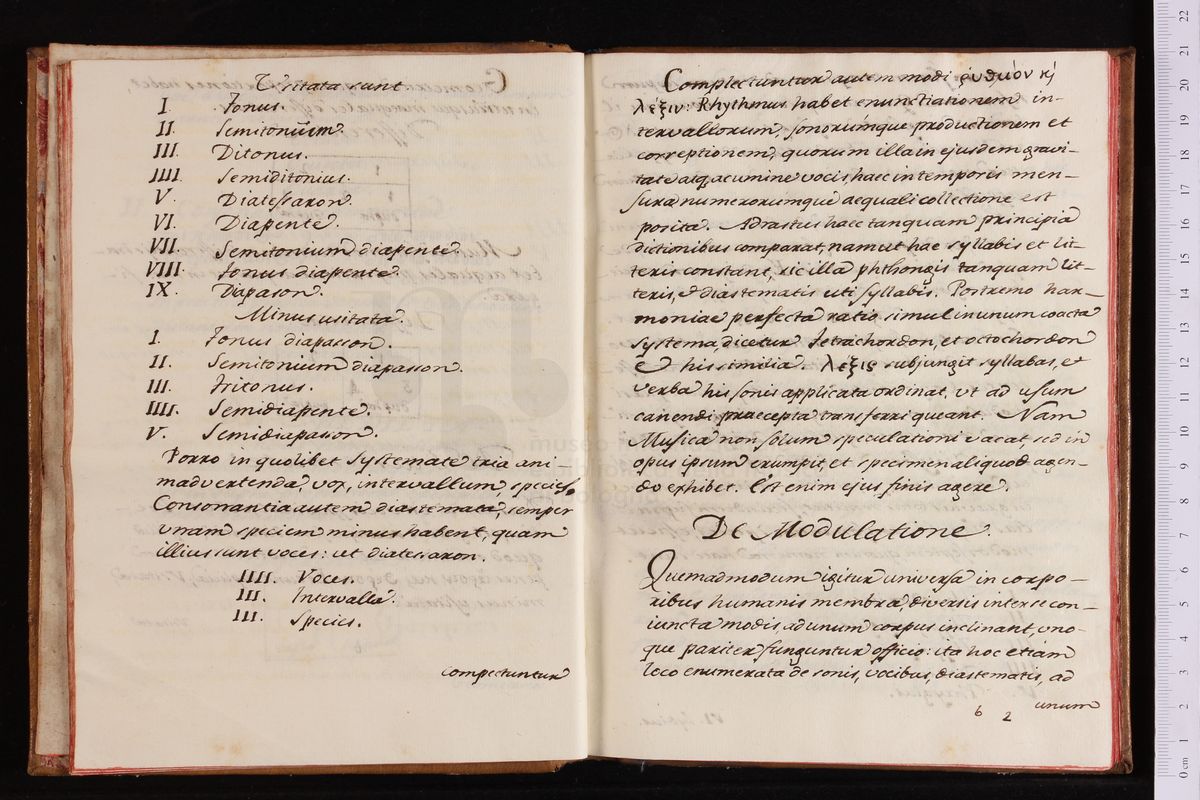 Usitata sunt
I. Tonus.
II. Semitonium.
III. Ditonus.
IIII. Semiditonius.
V. Diatessaron.
VI. Diapente.
VII. Semitonium diapente.
VIII. Tonus diapente.
IX. Diapason.
Minus usitata.
I. Tonus diapasson.
II. Semitonium diapasson.
III. Tritonus.
IIII. Semidiapente.
V. Semidiapason.
Porro in quolibet Systemate tria ani-
madvertenda, vox, intervallum, species.
Consonantia autem diastemata, semper
vnam speciem minus habent, quam
illius sunt voces: ut diatessaron.
IIII. Voces.
III. Intervalla.
III. Species.
compectuntur
Complectuntur autem modi ῥυθμόν κỳ
λέξιν: Rhythmus habet enunctiationem in-
tervallorum, sonorumque productionem et
correptionem, quorum illa in ejusdem gravi-
tate atq. acumine vocis, haec in temporis men-
sura numerorumque aequali collectione est
posita. Adrastus haec tanquam principia
dictionibus comparat, nam ut hae syllabis et lit-
teris constant, sic illa phthongis tanquam lit-
teris, & diastematis uti syllabis. Postremo har-
moniae perfecta ratio simul in unum coacta
systema dicetur tetrachordon, et octochordon
& his similia. λέξις subjungit syllabas, et
verba his sonis applicata ordinat, vt ad usum
canendi praecepta transferri queant. Nam
Musica non solum speculationi vacat sed in
opus ipsum erumpit, et specimen aliquod agen-
do exhibet. Est enim ejus finis agere.
De Modulatione.
Quemadmodum igitur universa in corpo-
ribus humanis membra, diversis inter se con-
iuncta modis, ad unum corpus inclinant, vno-
que pariter funguntur officio: ita hoc etiam
loco enumerata de sonis, vocibus, diastematis, ad
unum
6 2